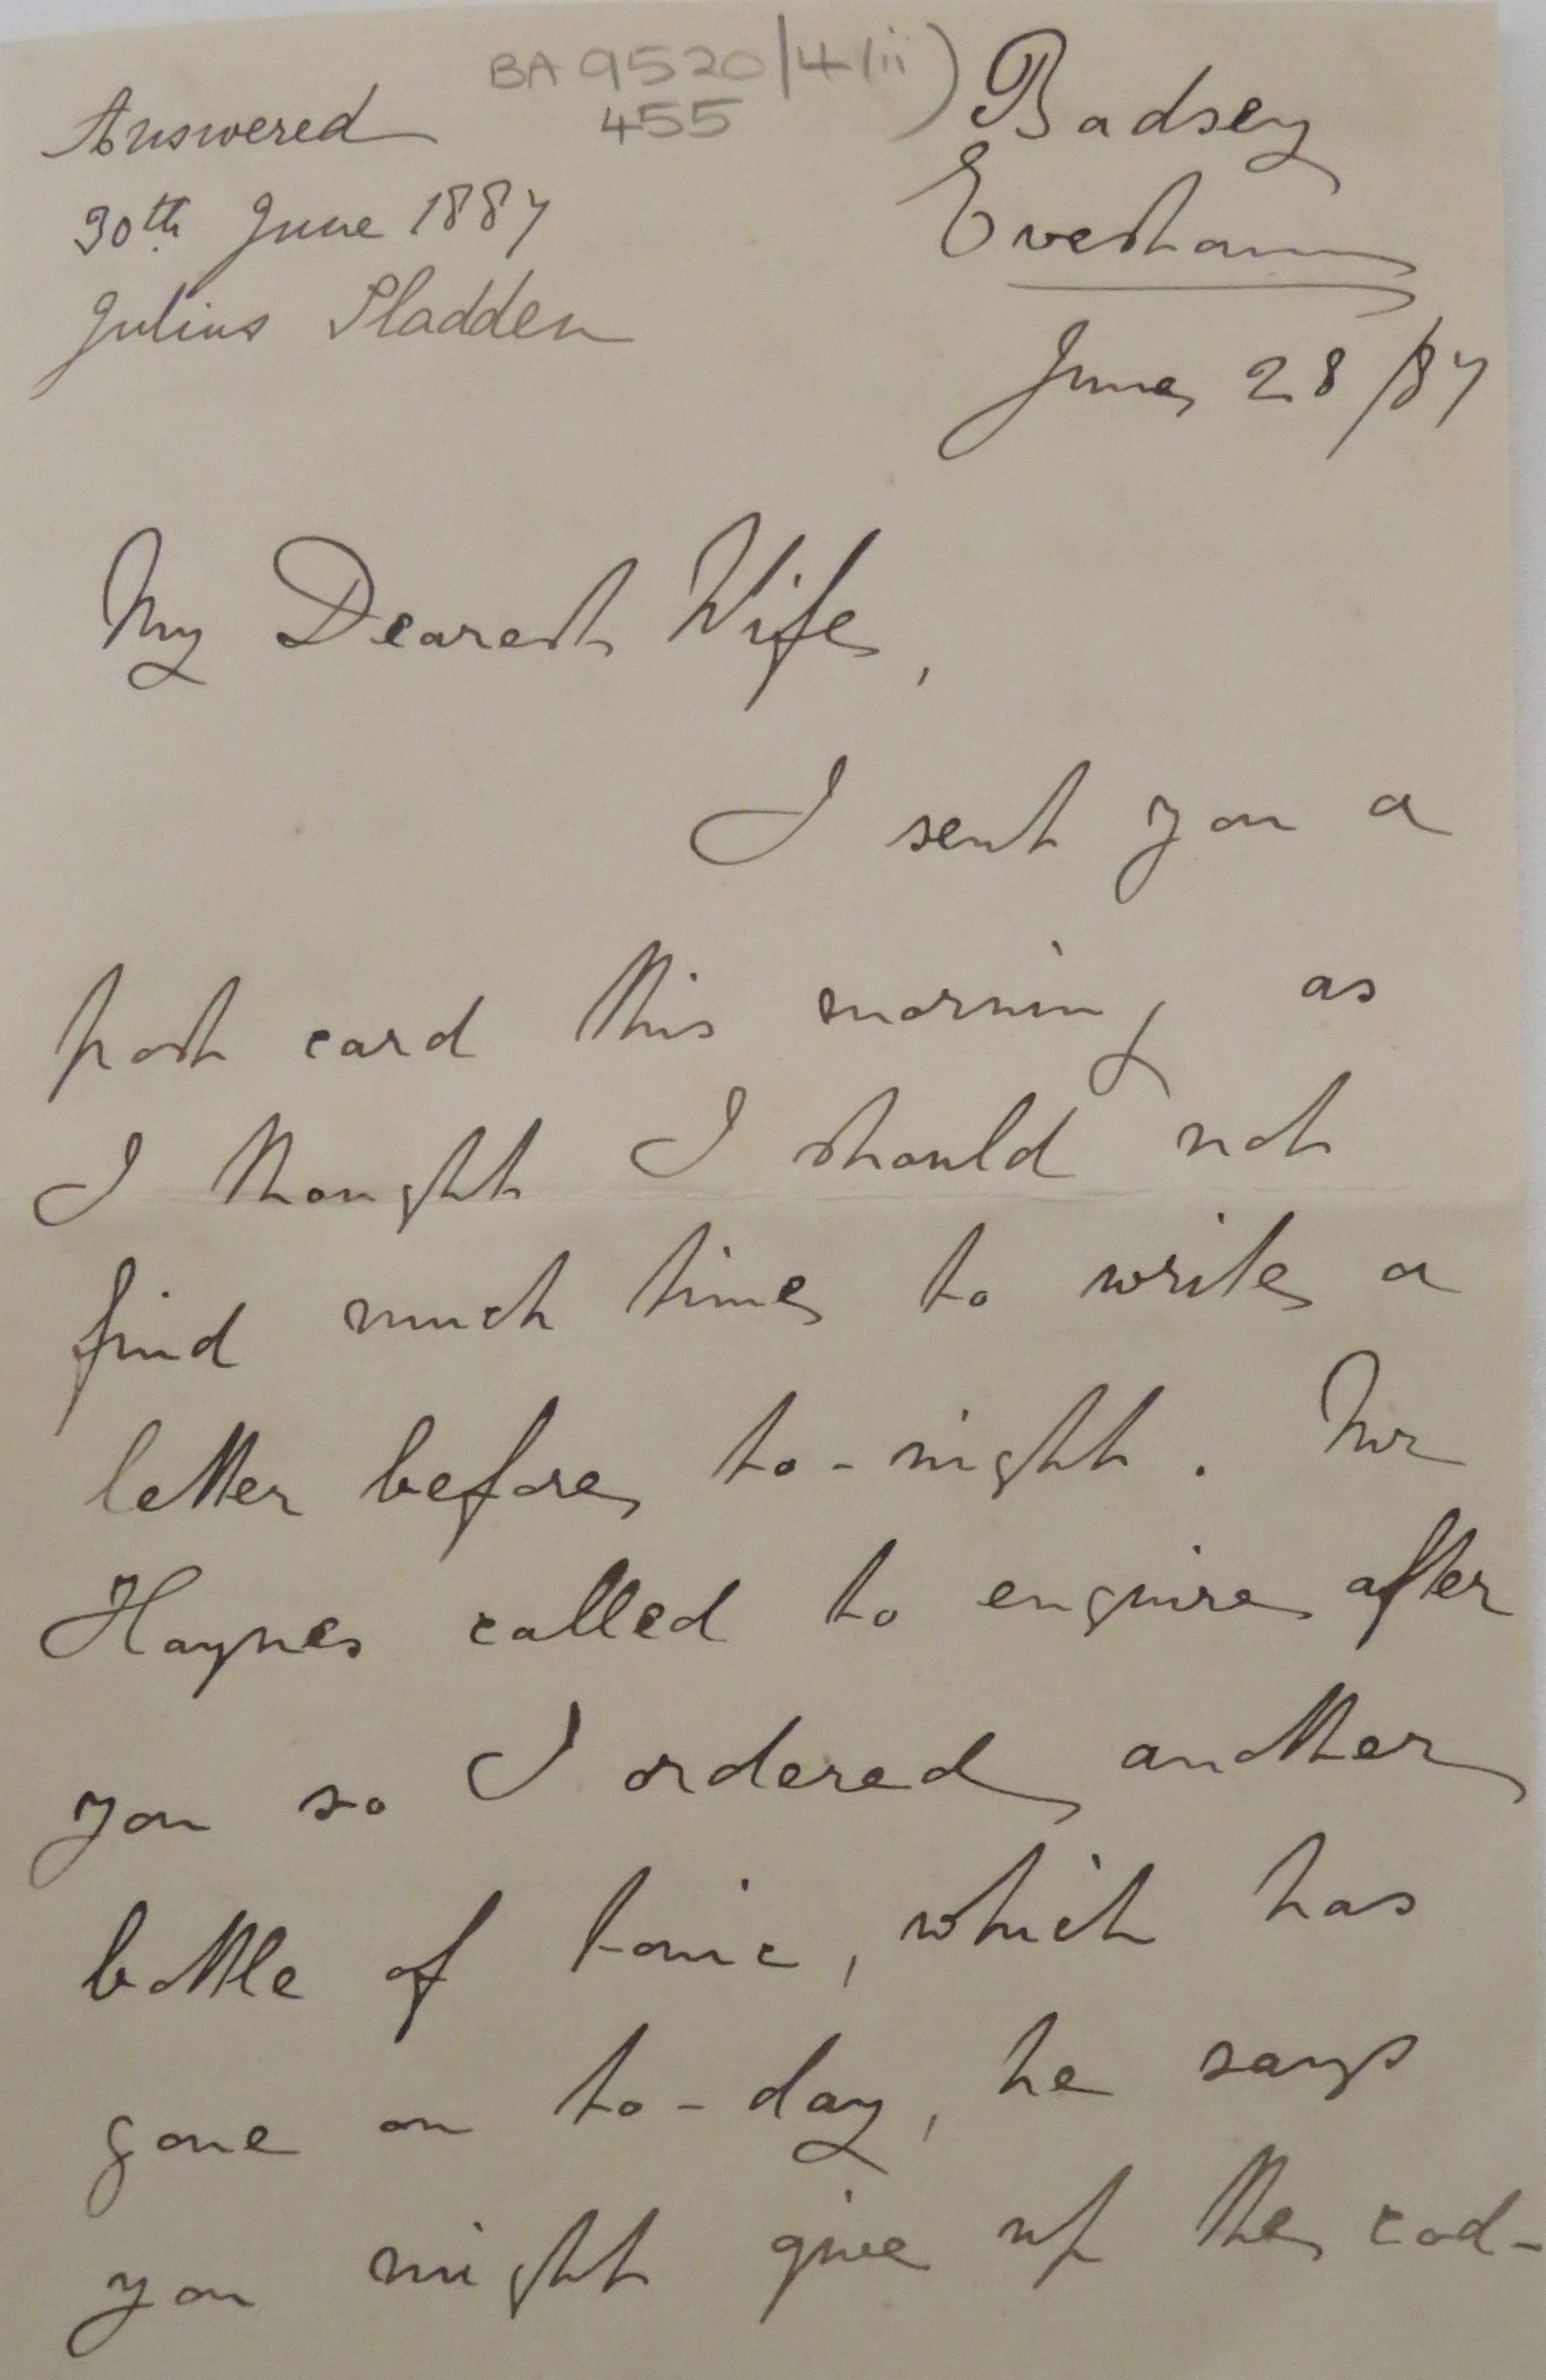 BA 9520/4(ii)
455
Answered
30th June 1887
Julius Sladden
Badsey
Evesham
June 28/87
My Dearest Wife,
I sent you a
post card this morning as
I thought I should not
find much time to write a
letter before to-night. Mr
Haynes called to enquire after
you so I ordered another
bottle of tonic, which has
gone on to-day, he says
you might give up the cod-